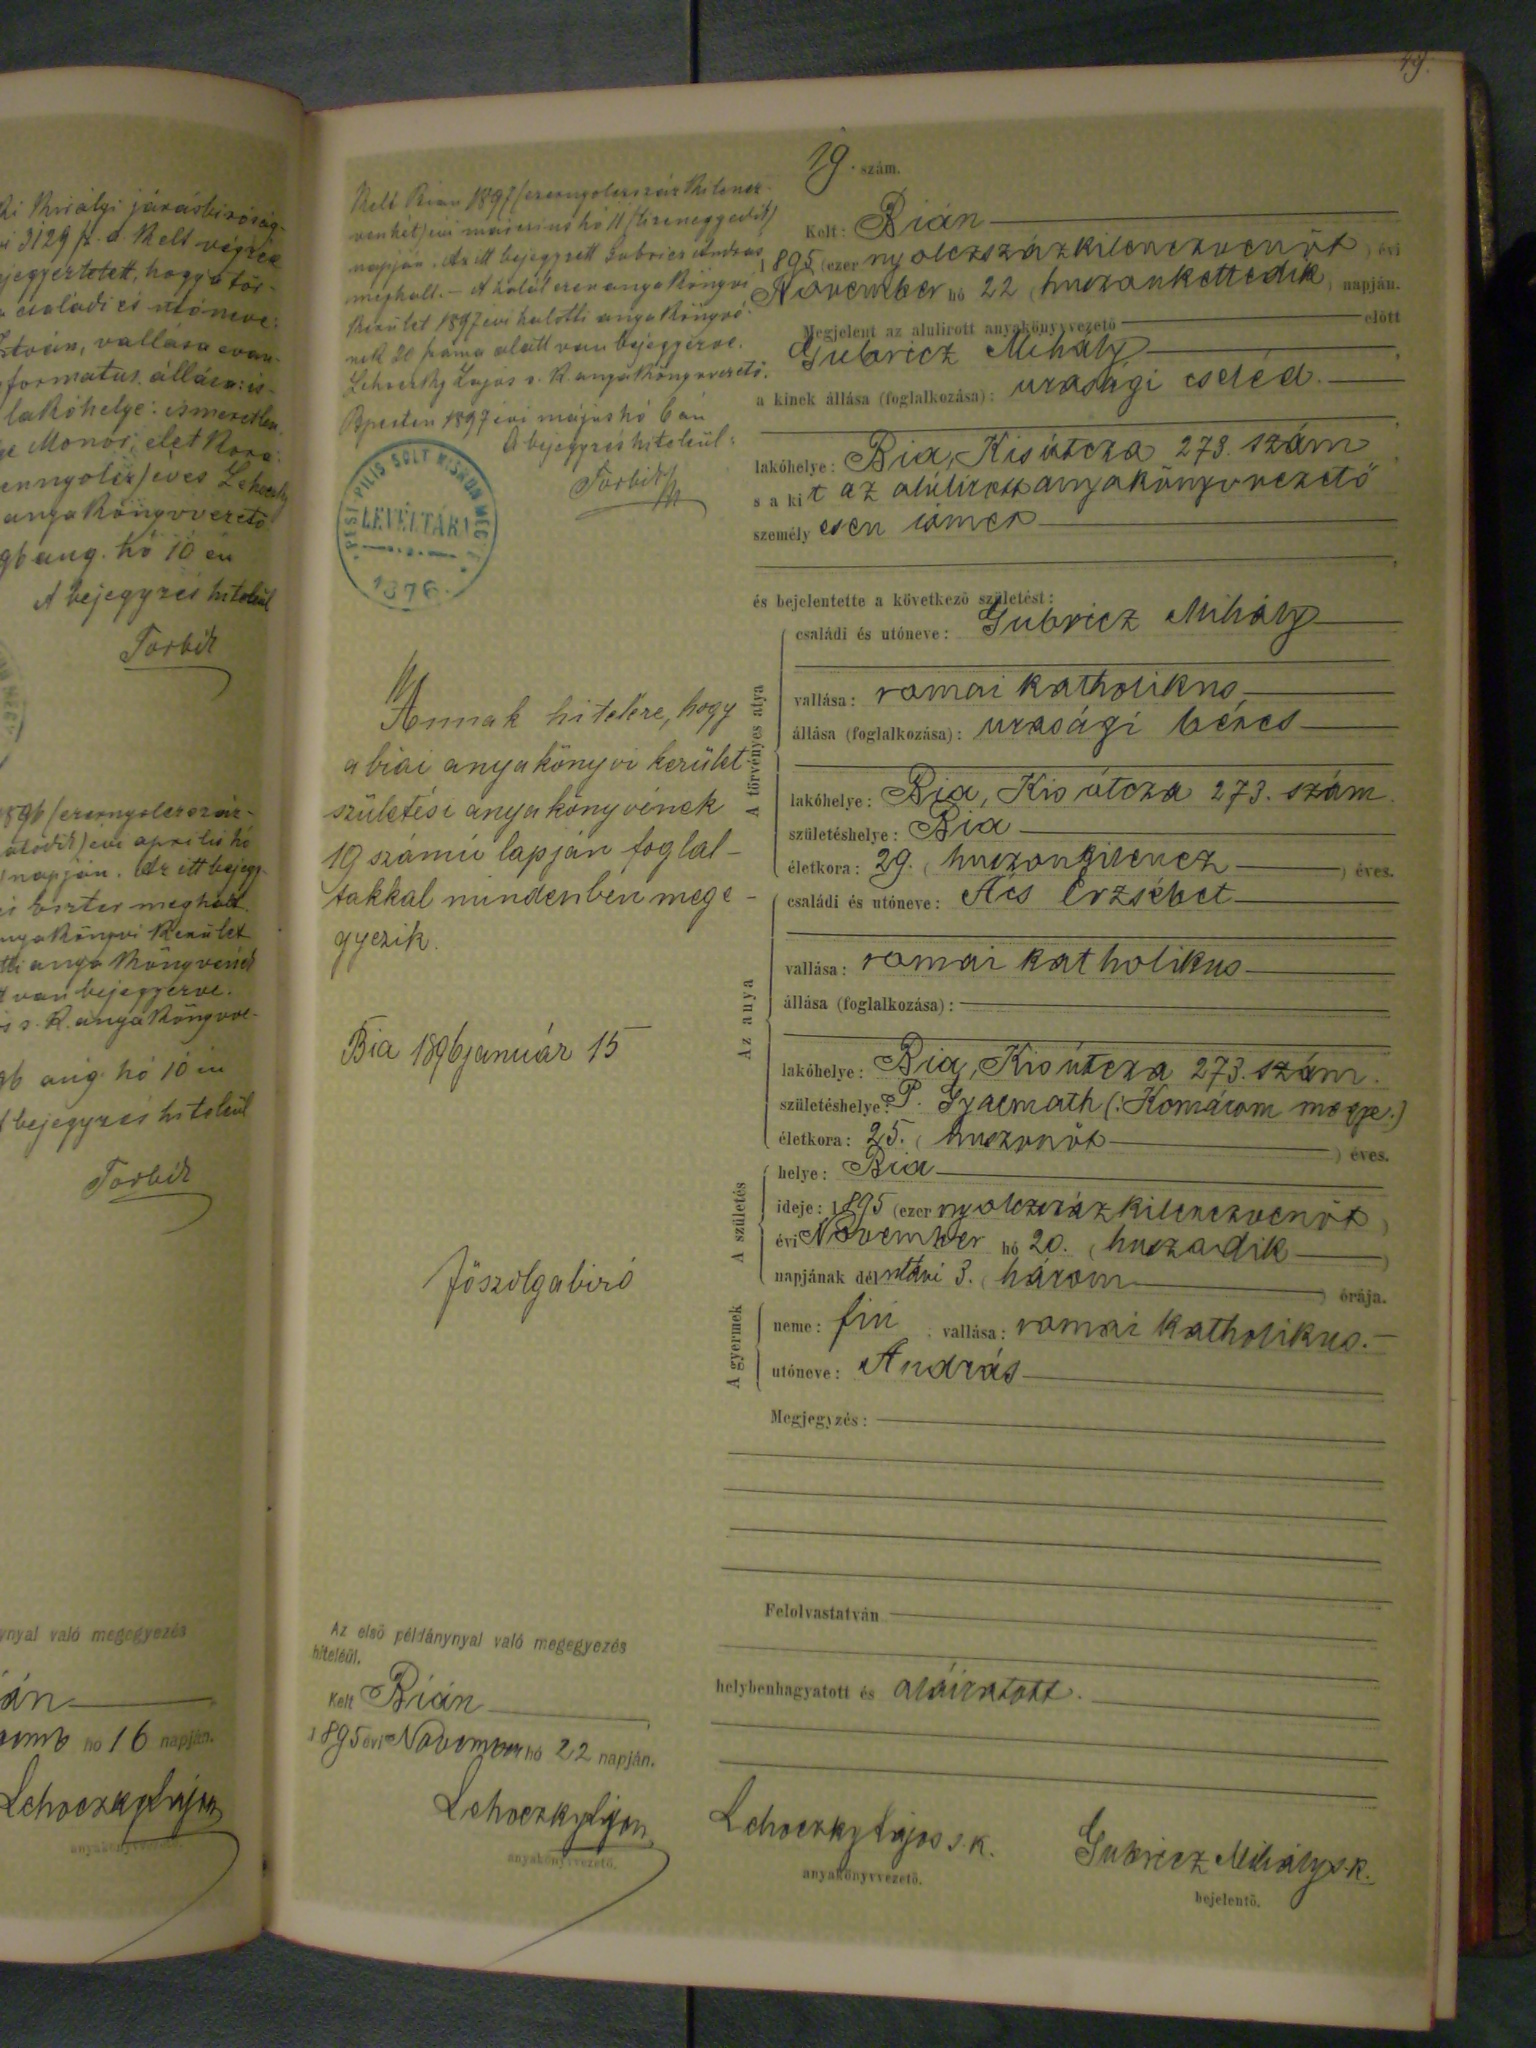 ki királyi járásbiróság-
3129 sz. a. kelt végzése
hogy a tör-
családi és utóneve:
István, vallása evan.
reformatus, állása: is-
lakóhelye: ismeretlen.
Monor, életkora:
éves Lehoczky
anyakönyvvezető
96 aug. hó 10 én
A bejegyzés hiteléül
Torbik
április hó
napján. Az itt bejegy-
Eszter meghalt.
anyakönyvi kerület
anyakönyvének
van bejegyezve.
s. k. anyakönyvve-
96 aug. hó 10 én
bejegyzés hiteléül
Torbik
ynyal való megegyezés
án
hó 16 napján.
Lehoczky Lajos
anyakönyvvezető.
49.
Kelt Bián 1897 (ezernyolczszázkilencz-
venhét) évi márczius hó 11 (tizenegyedik)
napján. Az itt bejegyzett Gubricz András
meghalt. – A halál ezen anyakönyvi
kerület 1897 évi halotti anyakönyvé-
nek 20 száma alatt van bejegyezve.
Lehoczky Lajos s. k. anyakönyvvezető.
Bpesten 1897 évi május hó 6 án
A bejegyzés hiteléül:
Torbik
PEST PILIS SOLT KISKUN MEGYE
LEVÉLTÁRA
1876
Annak hitelére, hogy
a biai anyakönyvi kerület
születési anyakönyvének
19 számú lapján foglal-
takkal mindenben mege-
gyezik.
Bia 1896 január 15
főszolgabiró
Az első példánynyal való megegyezés
hiteléül.
Kelt Bián
1895 évi November hó 22 napján.
Lehoczky Lajos
anyakönyvvezető.
19. szám.
Kelt: Bián
1895 (ezer nyolczszázkilenczvenöt) évi
November hó 22 (huszonkettedik) napján.
Megjelent az alulirott anyakönyvvezető előtt
Gubricz Mihály,
a kinek állása (foglalkozása): urasági cseléd.
lakóhelye: Bia, Kisútcza 273. szám,
s a kit az alúlirott anyakönyvvezető
személyesen ismer
és bejelentette a következő születést:
A törvényes atya
családi és utóneve: Gubricz Mihály
vallása: romai katholikus
állása (foglalkozása): urasági béres
lakóhelye: Bia, Kisútcza 273. szám.
születéshelye: Bia
életkora: 29. (huszonkilencz) éves.
Az anya
családi és utóneve: Ács Erzsébet
vallása: romai katholikus
állása (foglalkozása):
lakóhelye: Bia, Kisútcza 273. szám.
születéshelye: P. Gyarmath (: Komárom megye.)
életkora: 25. (huszonöt) éves.
A születés
helye: Bia
ideje: 1895 (ezer nyolczszázkilenczvenöt)
évi November hó 20. (huszadik)
napjának délutáni 3. (három) órája.
A gyermek
neme: fiú, vallása: romai katholikus.
utóneve: András
Megjegyzés:
Felolvastatván
helybenhagyatott és aláiratott.
Lehoczky Lajos s. k.
anyakönyvvezető.
Gubricz Mihály s. k.
bejelentő.